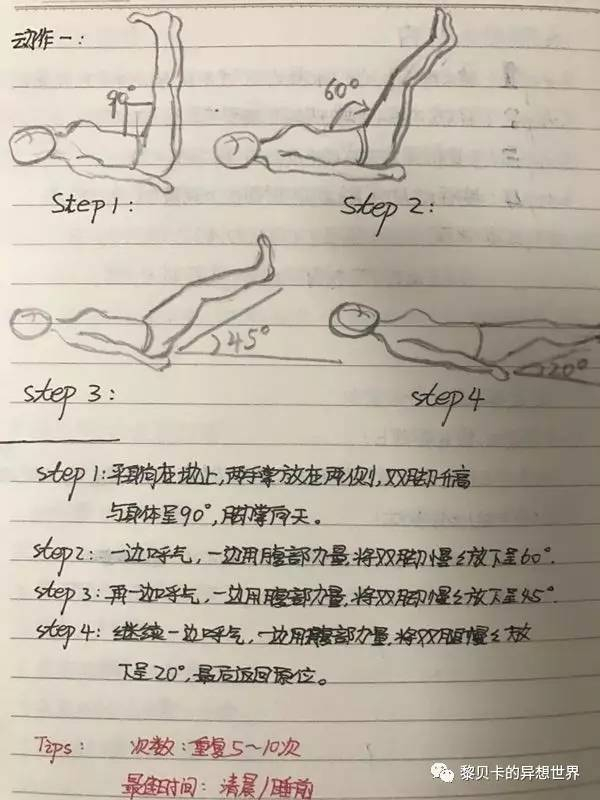 动作一:
90°
60°
step 1:
step 2:
45°
20°
step 3:
step 4
step 1:平躺在地上,两手掌放在两侧,双脚升高
与身体呈90°,脚掌向天。
step2:一边呼气,一边用腹部力量,将双脚慢慢放下呈60°.
step 3:再一边呼气,一边用腹部力量,将双脚慢慢放下呈45°.
step 4:继续一边呼气,一边用腹部力量,将双腿慢慢放
下呈20°,最后返回原位。
Tips: 次数:重复5~10次
最佳时间:清晨/睡前
黎贝卡的异想世界